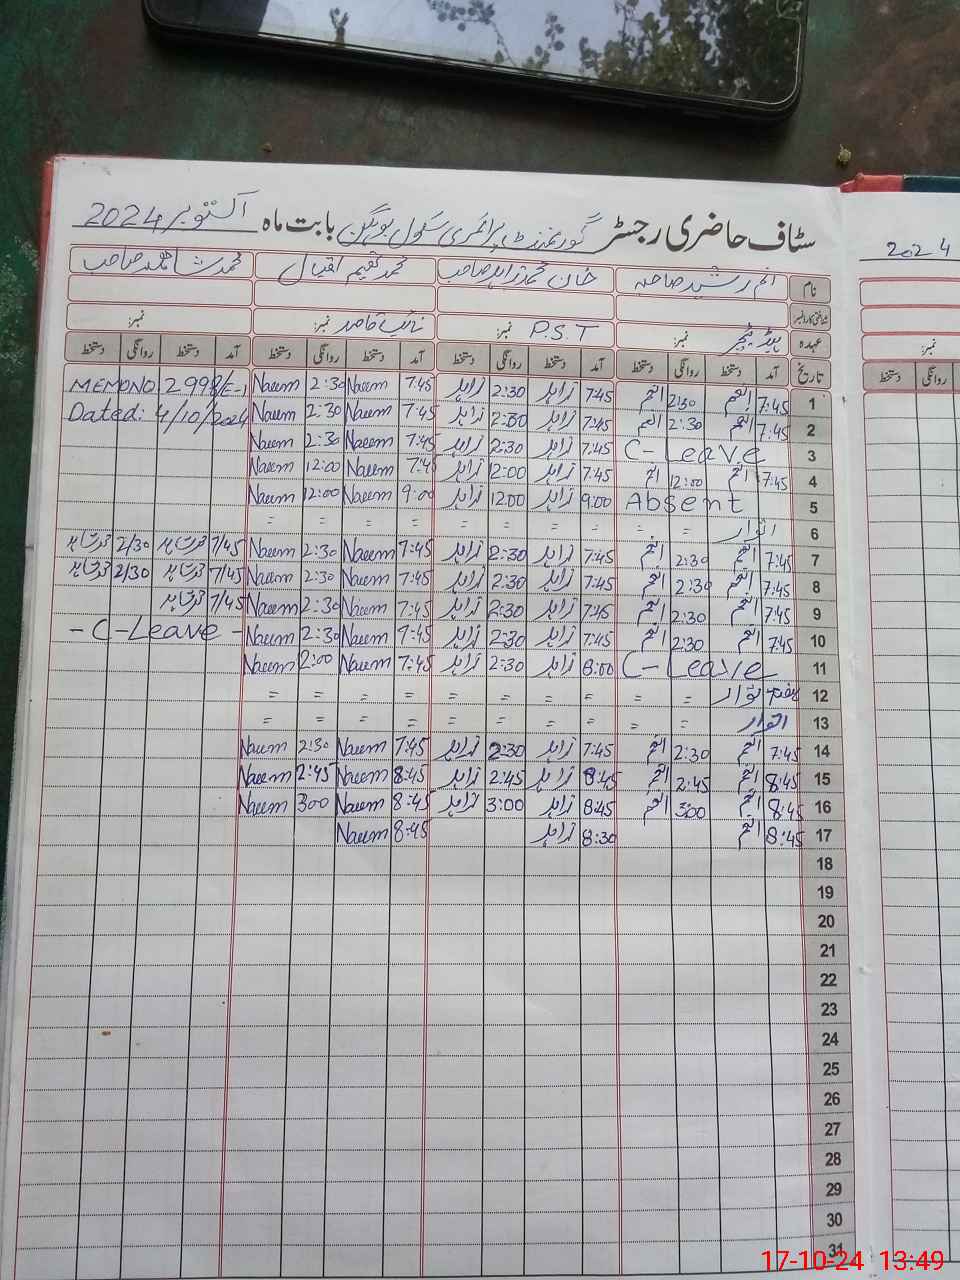 سٹاف حاضری رجسٹر گورنمنٹ پرائمری سکول بابت ماہ اکتوبر 2024
2024
نام انم رشید صاحبہ خان محمد زاہد صاحب محمد نعیم اقبال محمد شاہد صاحب
عہدہ ہیڈ ٹیچر نمبر: P.S.T نمبر: نائب قاصد نمبر: نمبر: نمبر:
تاریخ آمد دستخط روانگی دستخط آمد دستخط روانگی دستخط آمد دستخط روانگی دستخط آمد دستخط روانگی دستخط روانگی دستخط
1 7:45 انم 2:30 انم 7:45 زاہد 2:30 زاہد 7:45 Naeem 2:30 Naeem MEMONO 2998/E-1
2 7:45 انم 2:30 انم 7:45 زاہد 2:30 زاہد 7:45 Naeem 2:30 Naeem Dated: 4/10/2024
3 C-Leave 7:45 زاہد 2:30 زاہد 7:45 Naeem 2:30 Naeem
4 7:45 انم 12:00 انم 7:45 زاہد 12:00 زاہد 7:45 Naeem 12:00 Naeem
5 Absent 9:00 زاہد 12:00 زاہد 9:00 Naeem 12:00 Naeem
6 اتوار = = = = = = = = = =
7 7:45 انم 2:30 انم 7:45 زاہد 2:30 زاہد 7:45 Naeem 2:30 Naeem 7/45 2/30
8 7:45 انم 2:30 انم 7:45 زاہد 2:30 زاہد 7:45 Naeem 2:30 Naeem 7/45 2/30
9 7:45 انم 2:30 انم 7:45 زاہد 2:30 زاہد 7:45 Naeem 2:30 Naeem 7/45
10 7:45 انم 2:30 انم 7:45 زاہد 2:30 زاہد 7:45 Naeem 2:30 Naeem - C-Leave -
11 C-Leave 8:00 زاہد 2:30 زاہد 7:45 Naeem 2:00 Naeem
12 = = = = = = = = = =
13 اتوار = = = = = = = = = =
14 7:45 انم 2:30 انم 7:45 زاہد 2:30 زاہد 7:45 Naeem 2:30 Naeem
15 8:45 انم 2:45 انم 8:45 زاہد 2:45 زاہد 8:45 Naeem 2:45 Naeem
16 8:45 انم 3:00 انم 8:45 زاہد 3:00 زاہد 8:45 Naeem 3:00 Naeem
17 8:45 انم 8:30 زاہد 8:45 Naeem
18
19
20
21
22
23
24
25
26
27
28
29
30
31
17-10-24 13:49